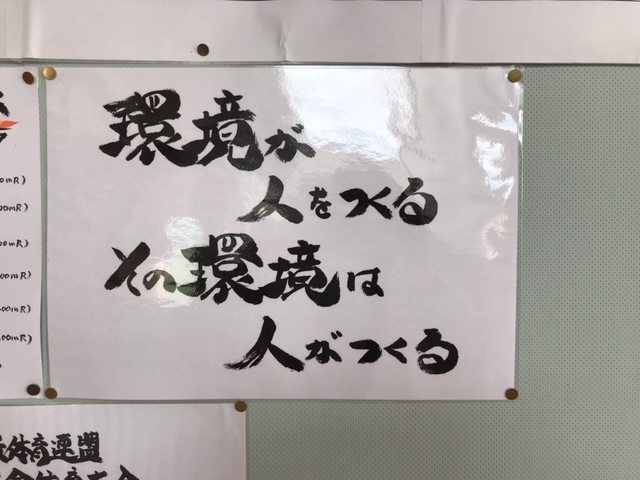 環境が
人をつくる
その環境は
人がつくる
00mR)
00mR)
00mR)
00mR)
00mR)
体育連盟